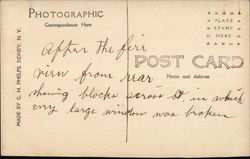 PHOTOGRAPHIC
Correspondence Here
PLACE
STAMP
HERE
POST CARD
Name and Address
MADE BY C. H. PHELPS, SIDNEY, N.Y.
After the fire
view from rear
showing blocks across st in which
every large window was broken